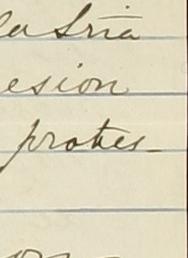 la Sría
esion
protes-